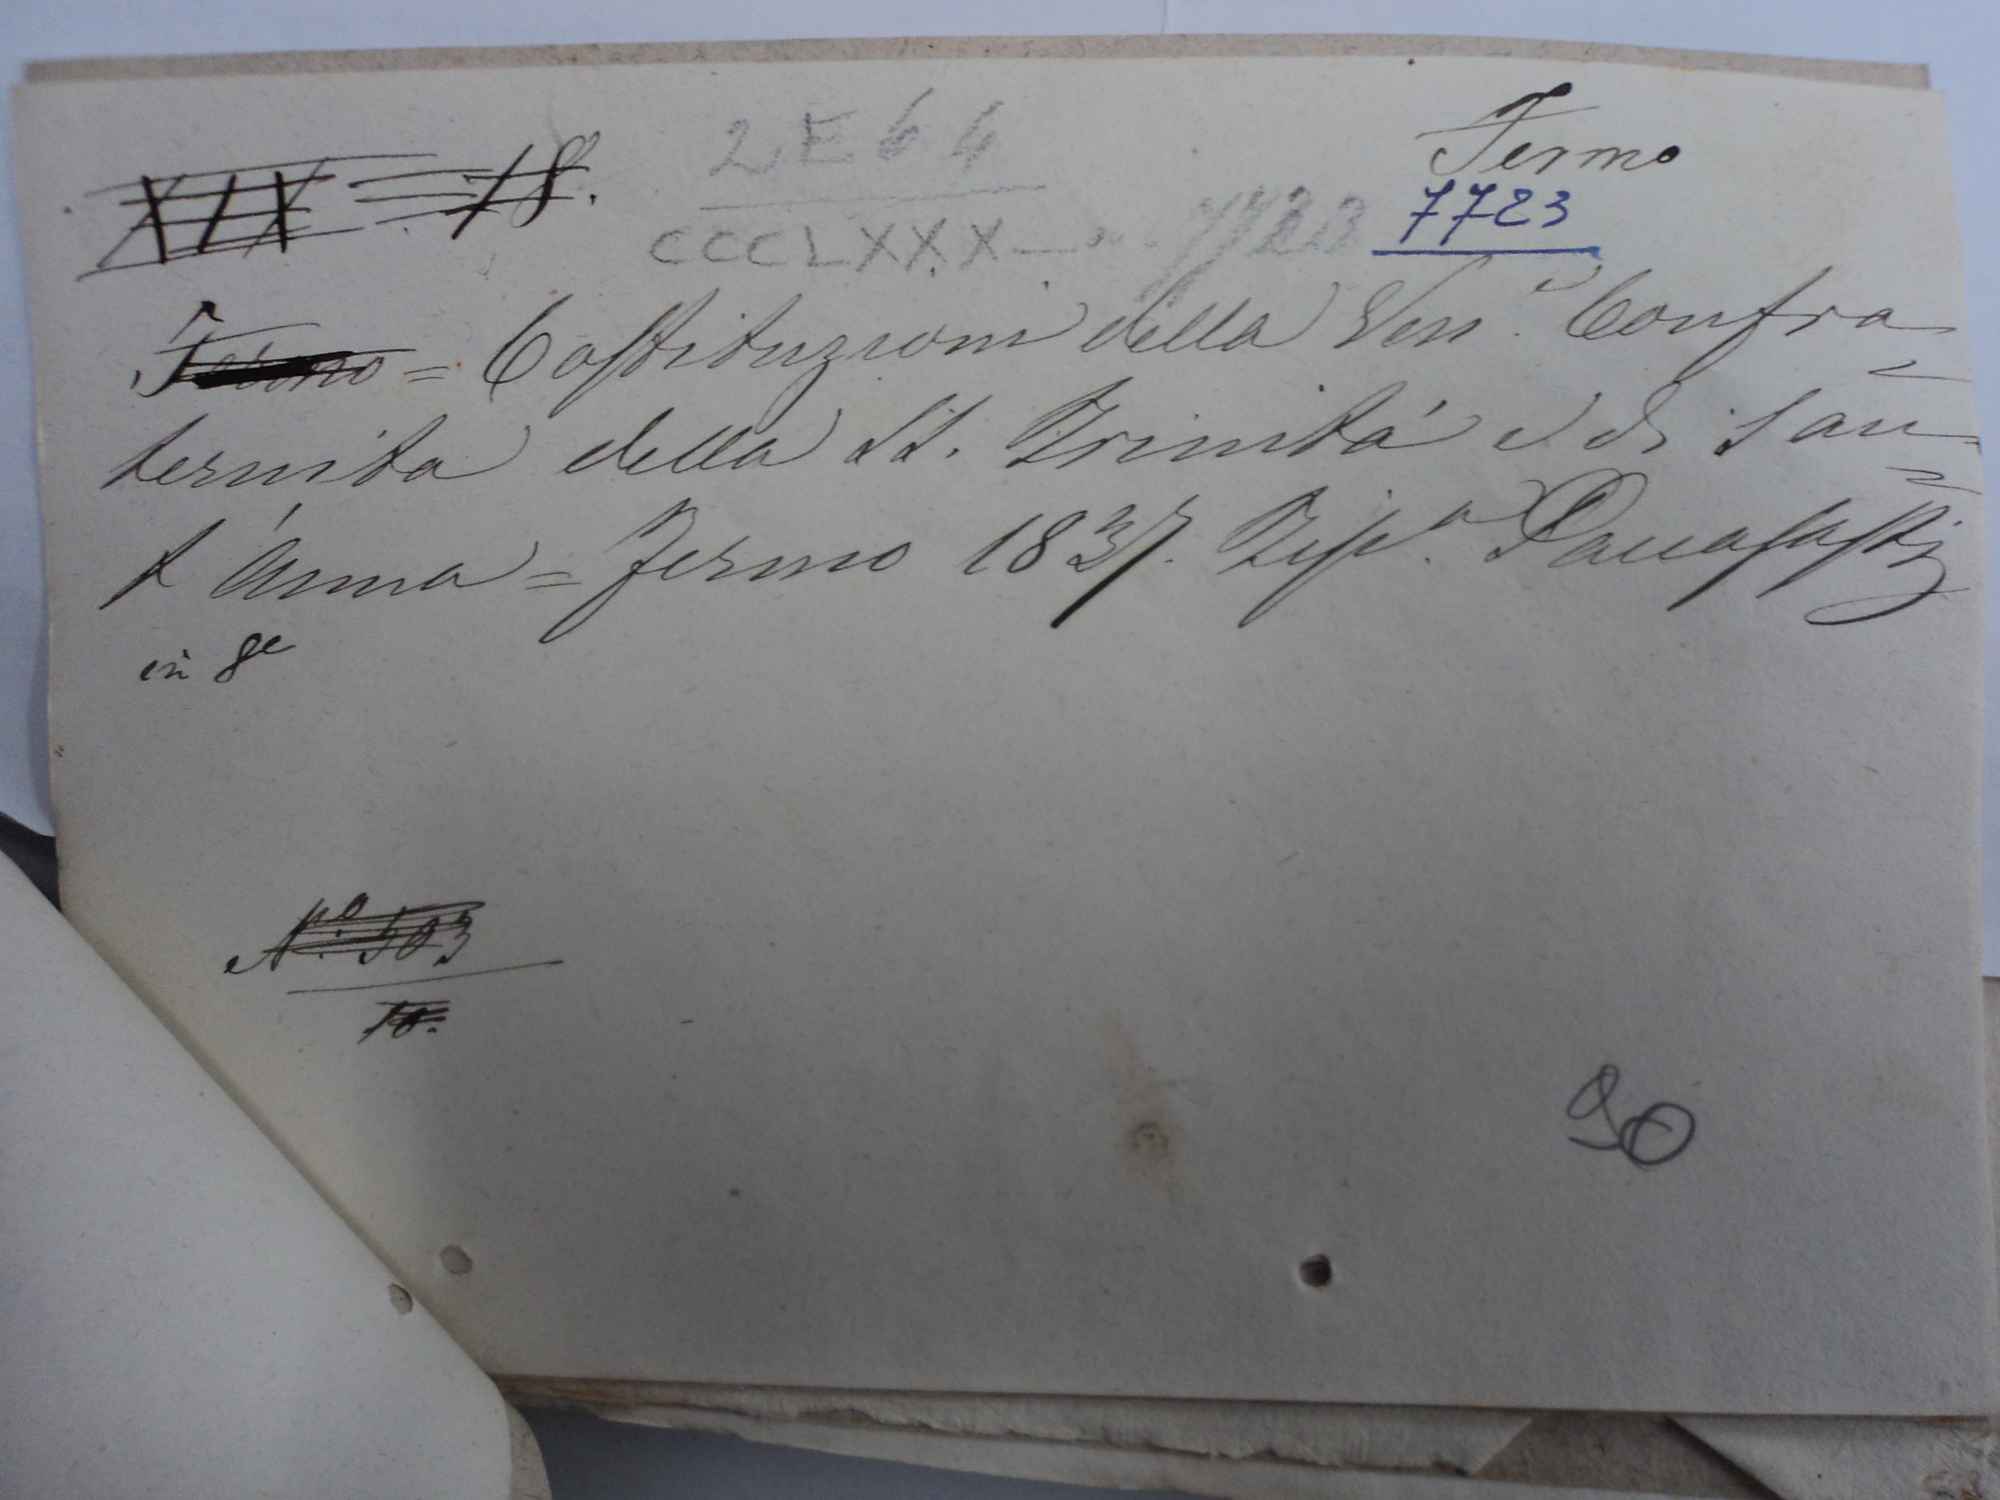 Fermo
XIX = 18.
2 E 64
CCCLXXX — 7723 7723
Fermo = Costituzioni della Ven. Confra
ternita della SS. Trinità e di San
t'Anna = Fermo 1837. Tip.a Paccasassi
in 8e
N.o 503
10.
90